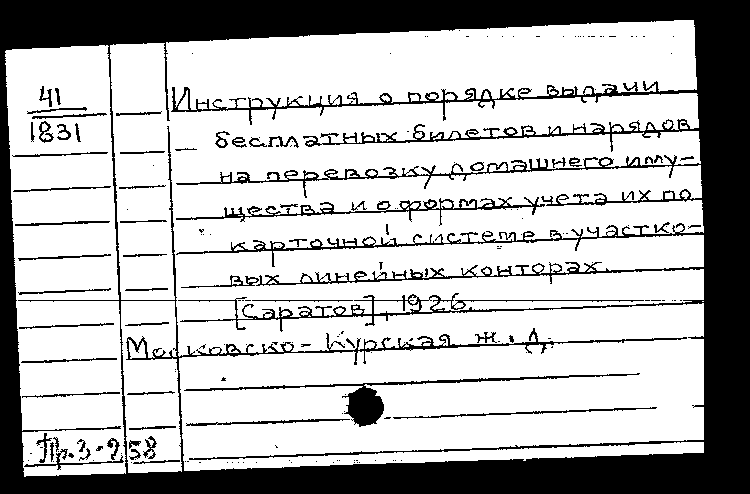 41
1831
Инструкция о порядке выдачи
бесплатных билетов и нарядов
на перевозку домашнего иму-
щества и о формах учета их по
карточной системе в участко-
вых линейных конторах.
[Саратов], 1926.
Московско-Курская ж.д.
Пр.3-258